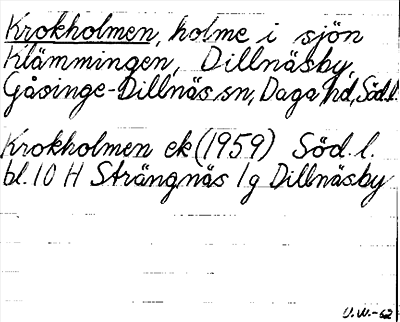 Krokholmen, holme i sjön
Klämmingen, Dillnäsby,
Gåsinge-Dillnäs sn, Daga hd, Söd.l.
Krokholmen ek (1959) Söd. l.
bl. 10 H Strängnäs 1g Dillnäsby
U.W.-62